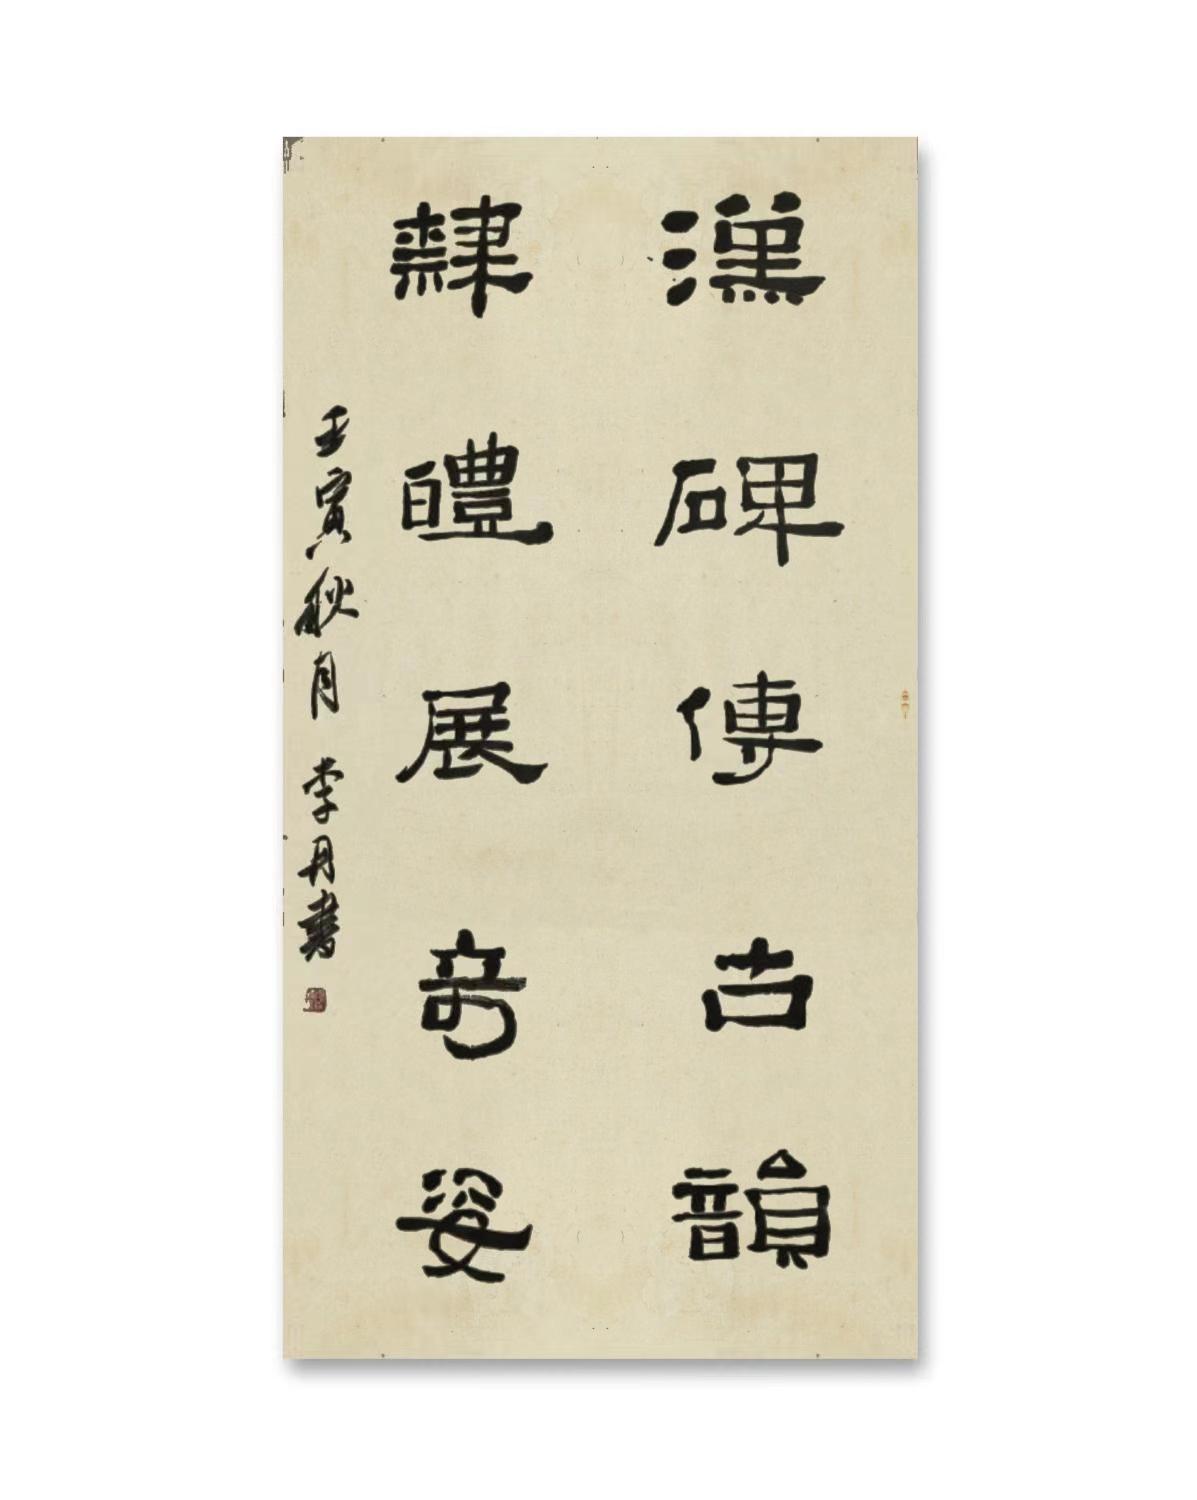 漢碑傳古韻
隸體展奇姿
壬寅秋月李丹書